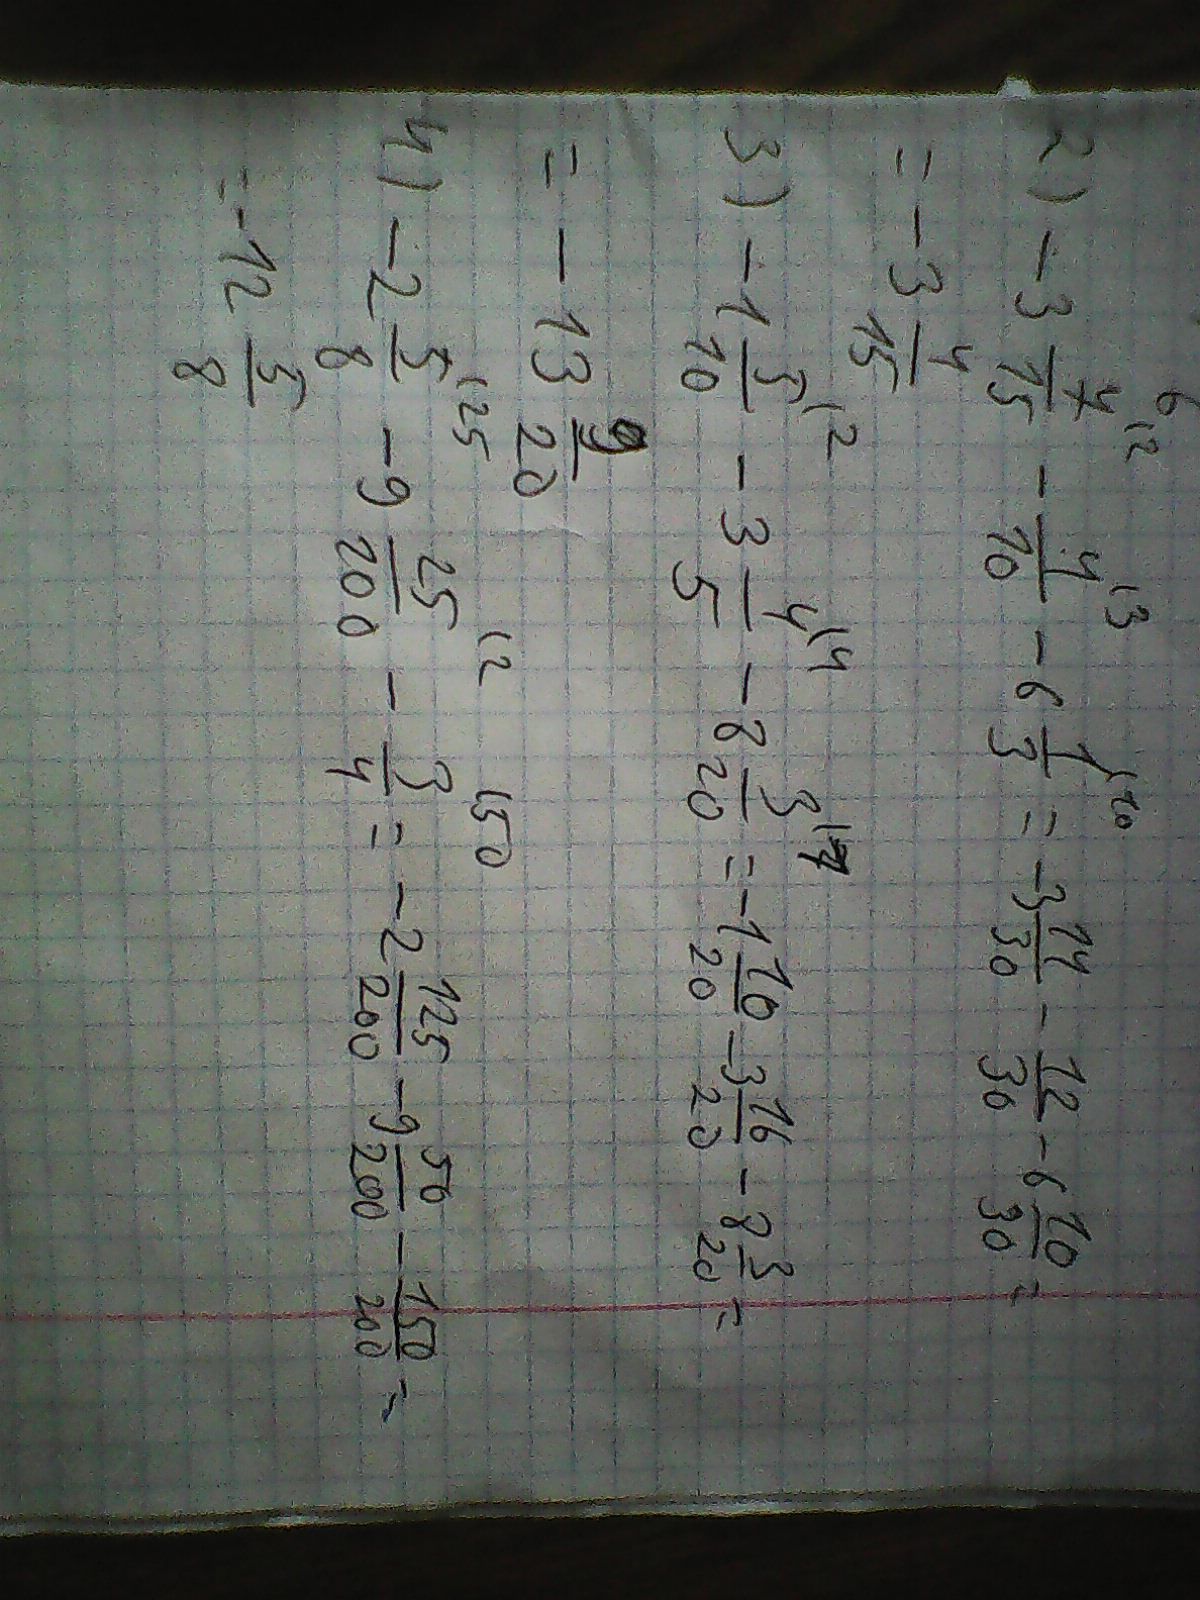 6
2) -3 7/15 ^(2 - 4/10 ^(3 - 6 1/3 ^(10 = -3 14/30 - 12/30 - 6 10/30 =
= -3 4/15
3) -1 5/10 ^(2 - 3 4/5 ^(4 - 8 3/20 = -1 10/20 - 3 16/20 - 8 3/20 =
= -13 9/20
4) -2 5/8 ^(25 - 9 25/200 ^(2 - 3/4 ^(50 = -2 125/200 - 9 50/200 - 150/200 =
= -12 5/8